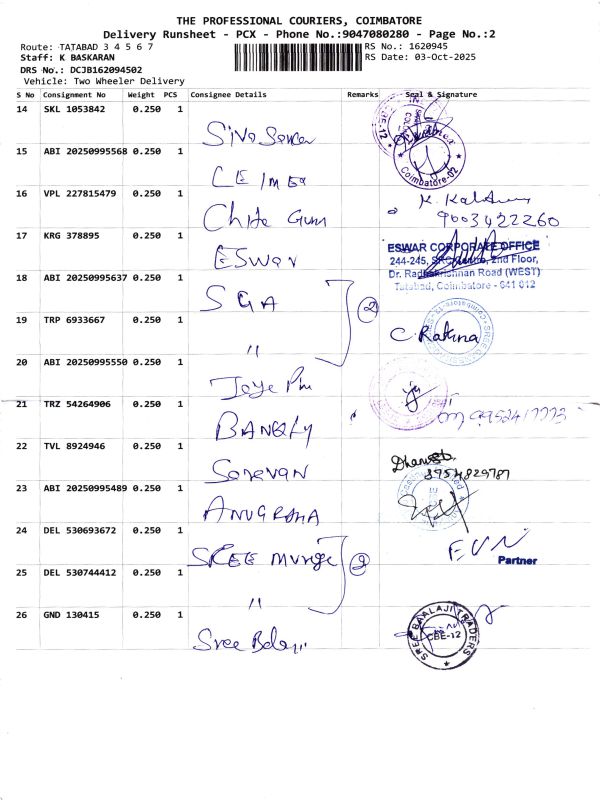 THE PROFESSIONAL COURIERS, COIMBATORE
Delivery Runsheet - PCX - Phone No.:9047080280 - Page No.:2
Route: TATABAD 3 4 5 6 7 RS No.: 1620945
Staff: K BASKARAN RS Date: 03-Oct-2025
DRS No.: DCJB162094502
Vehicle: Two Wheeler Delivery
S No Consignment No Weight PCS Consignee Details Remarks Seal & Signature
14 SKL 1053842 0.250 1
CBE-12
15 ABI 20250995568 0.250 1
Coimbatore-02
16 VPL 227815479 0.250 1
9003422260
17 KRG 378895 0.250 1 ESWAR
ESWAR CORPORATE OFFICE
244-245, 2nd Floor,
Dr. Radhakrishnan Road (WEST)
Tatabad, Coimbatore - 641 012
18 ABI 20250995637 0.250 1 SGA 2
19 TRP 6933667 0.250 1 " C. Rathna
20 ABI 20250995550 0.250 1
21 TRZ 54264906 0.250 1
22 TVL 8924946 0.250 1 Saravan
23 ABI 20250995489 0.250 1 ANUGRAHA
24 DEL 530693672 0.250 1 SREE 2
Partner
25 DEL 530744412 0.250 1 "
26 GND 130415 0.250 1 Sree Balaji
SREE BAALAJI TRADERS
CBE-12